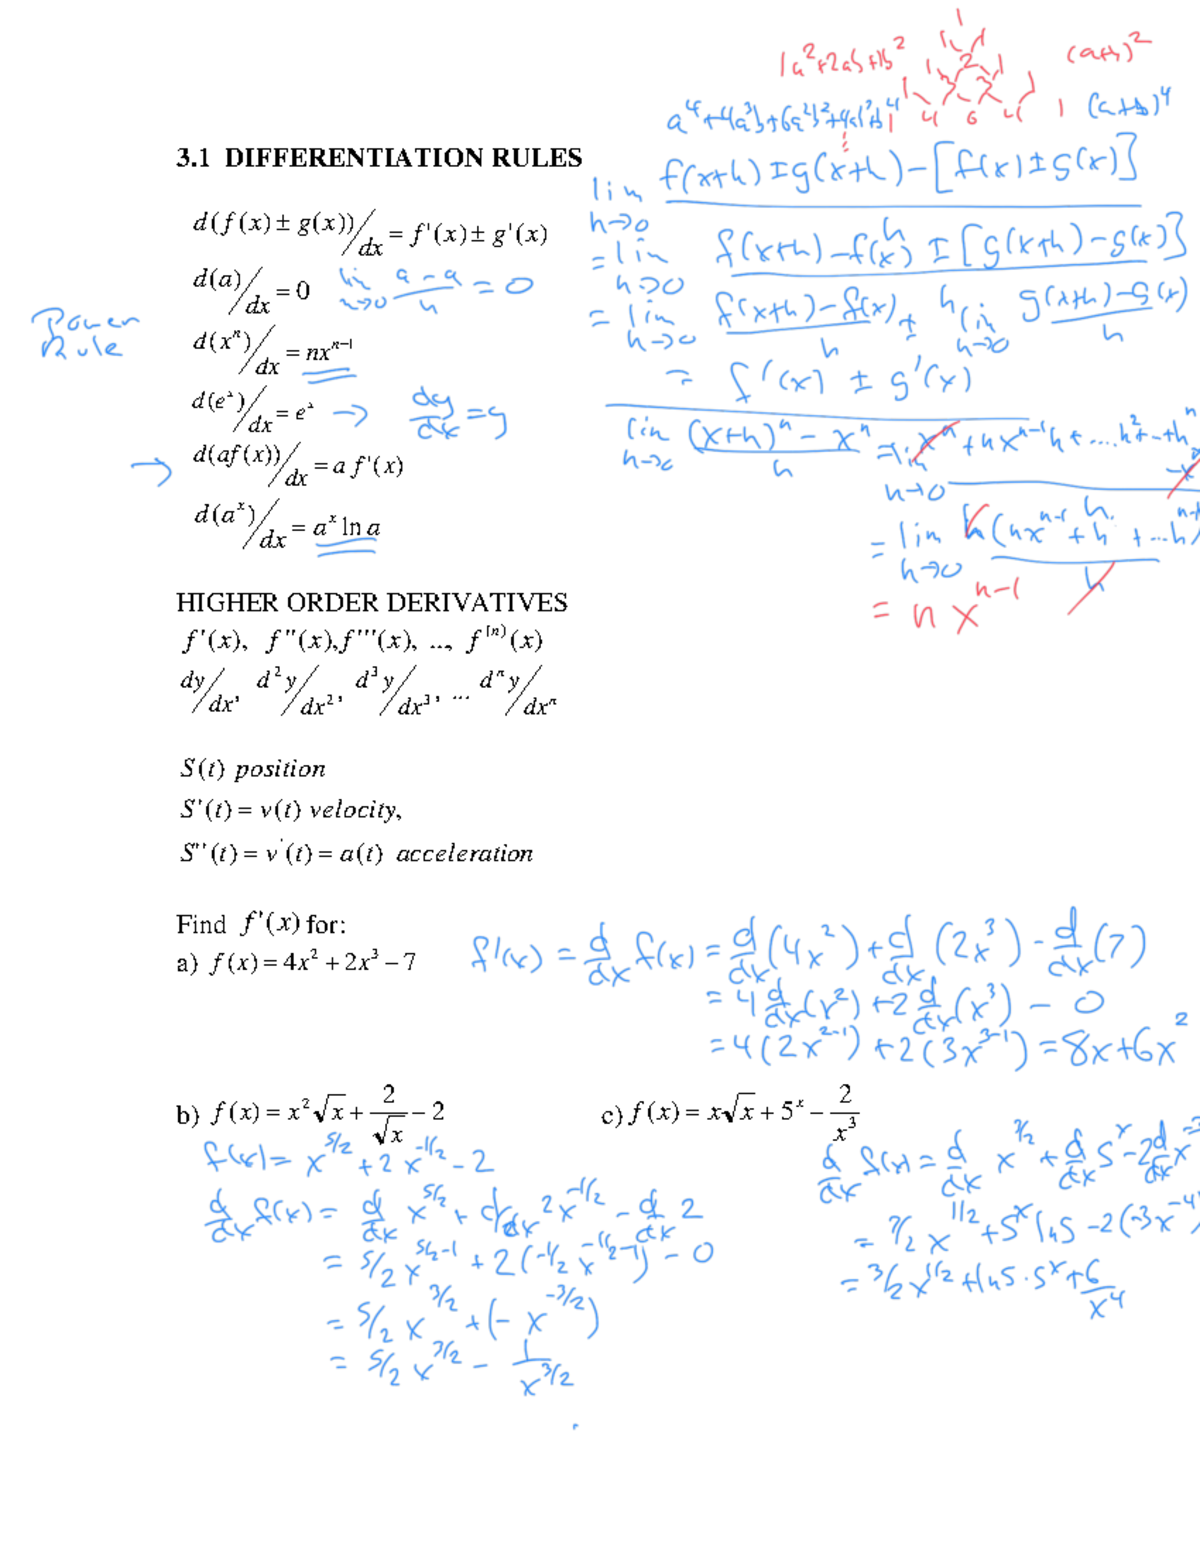 1a²+2ab+1b²
1
1 1
1 2 1
(a+b)²
1 3 3 1
a⁴+4a³b+6a²b²+4ab³+b⁴
1 4 6 4 1
(a+b)⁴
3.1 DIFFERENTIATION RULES
lim h→0 f(x+h)±g(x+h)−[f(x)±g(x)] / h
d(f(x)± g(x))/dx = f'(x)± g'(x)
= lim h→0 f(x+h)−f(x) ± [g(x+h)−g(x)] / h
d(a)/dx = 0
lim h→0 a−a / h = 0
= lim h→0 f(x+h)−f(x) / h ± lim h→0 g(x+h)−g(x) / h
Power
Rule
d(xⁿ)/dx = nxⁿ⁻¹
= f'(x) ± g'(x)
d(eˣ)/dx = eˣ → dy/dx = y
lim h→0 (x+h)ⁿ − xⁿ / h = lim h→0 xⁿ + nxⁿ⁻¹h + ....h²+−+hⁿ −x
→ d(af(x))/dx = a f'(x)
d(aˣ)/dx = aˣ ln a
= lim h→0 h(nxⁿ⁻¹ + h + ...hⁿ⁻¹) / h
= n xⁿ⁻¹
HIGHER ORDER DERIVATIVES
f'(x), f''(x),f'''(x), .., f⁽ⁿ⁾(x)
dy/dx, d²y/dx², d³y/dx³, ... dⁿy/dxⁿ
S(t) position
S'(t) = v(t) velocity,
S''(t) = v'(t) = a(t) acceleration
Find f'(x) for:
a) f(x) = 4x² + 2x³ − 7
f'(x) = d/dx f(x) = d/dx (4x²) + d/dx (2x³) − d/dx (7)
= 4 d/dx (x²) + 2 d/dx (x³) − 0
= 4(2x²⁻¹) + 2(3x³⁻¹) = 8x+6x²
b) f(x) = x²√x + 2/√x − 2
f(x) = x^5/2 + 2x^-1/2 − 2
d/dx f(x) = d/dx x^5/2 + d/dx 2x^-1/2 − d/dx 2
= 5/2 x^5/2-1 + 2(-1/2 x^-1/2-1) − 0
= 5/2 x^3/2 + (− x^-3/2)
= 5/2 x^3/2 − 1/x^3/2
c) f(x) = x√x + 5ˣ − 2/x³
d/dx f(x) = d/dx x^3/2 + d/dx 5ˣ − 2 d/dx x⁻³
= 3/2 x^1/2 + 5ˣ ln5 − 2(−3x⁻⁴)
= 3/2 x^1/2 + ln5 · 5ˣ + 6/x⁴